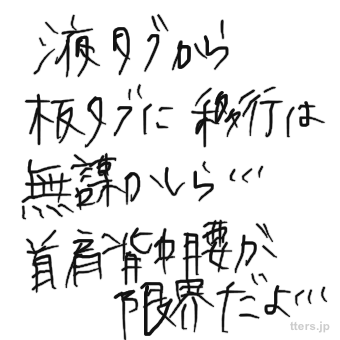 液タブから
板タブに移行は
無謀かしら…
首肩背中腰が
限界だよ…
tters.jp